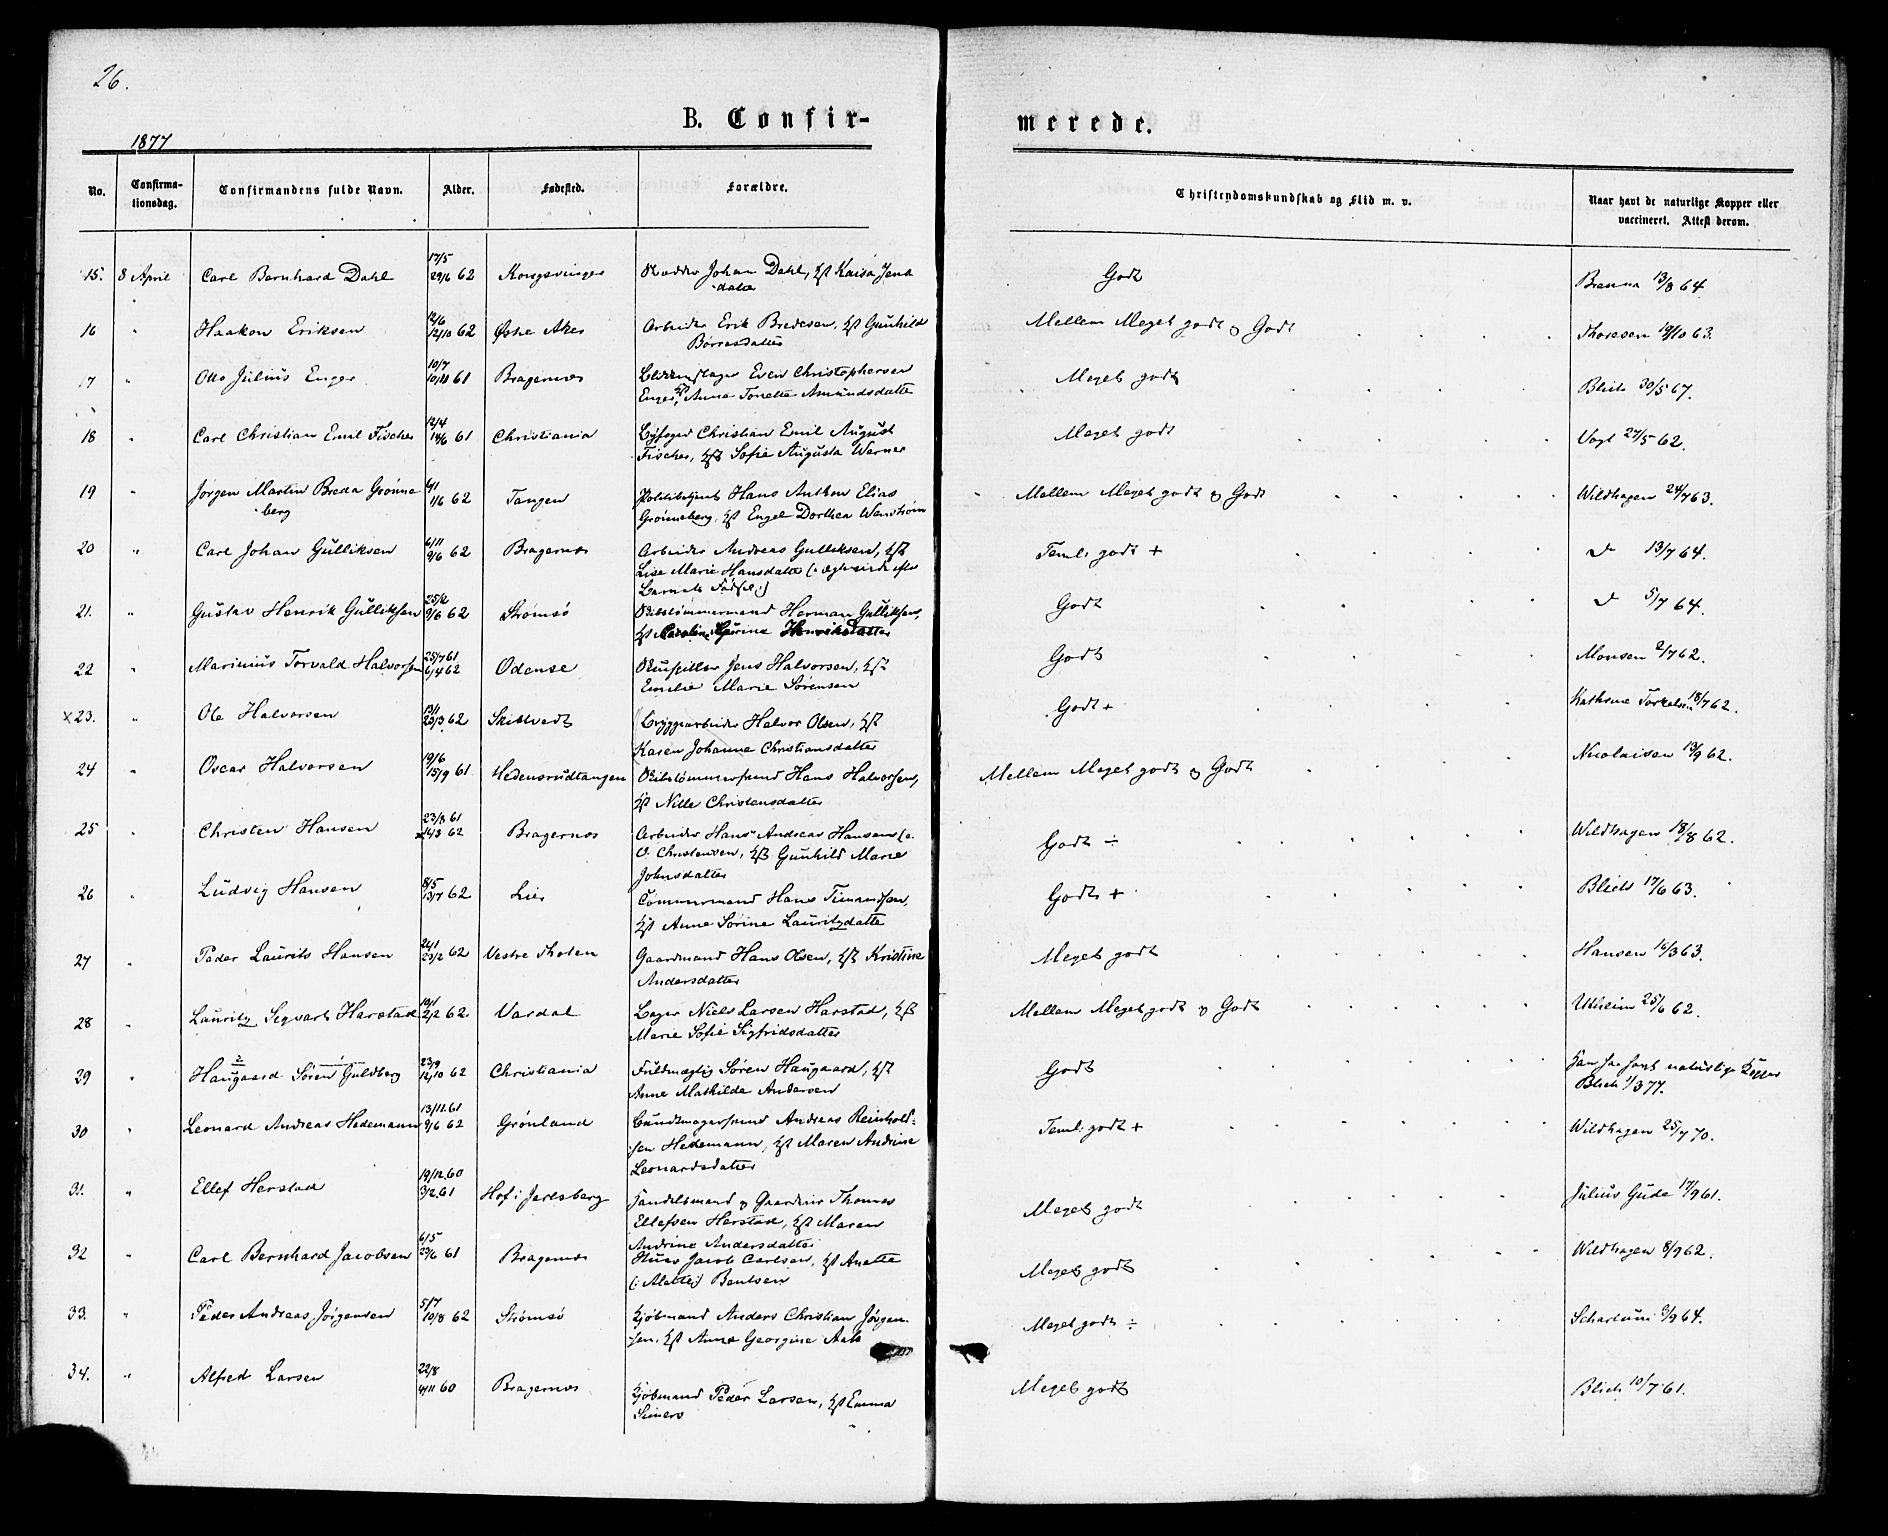 26.
B. Confir-
merede.
1877
No. Confirma-tionsdag. Confirmandens fulde Navn. Alder. Fødested. Forældre. Christendomskundskab og Flid m. v. Naar havt de naturlige Kopper eller vaccineret. Attest derom.
15. 8 April Carl Bernhard Dahl 17/5 29/6 62 Kongsvinger Johan Dahl, Kaisa Jens Godt 13/8 64.
datter
16 " Haakon Eriksen 12/6 12/10 62 Østre Aker Arbeider Erik Bredesen, Gunhild Mellem Meget godt og Godt Thoresen 19/10 63.
Børresdatter
17 " Otto Julius Enger 10/7 10/11 61 Bragernes Blikkenslager Even Christophersen Meget godt Blich 30/5 67.
Enger, Anne Tonette Amundsdatter
18 " Carl Christian Emil Fischer 12/4 61 Christiania Byfoged Christian Emil August Meget godt Vogt 27/5 62.
Fischer, Sofie Augusta Werner
19 " Jørgen Martin Breda Grønne 1/6 62 Tangen Politibetjent Hans Anthon Elias Mellem Meget godt og Godt Wildhagen 24/7 63.
berg Grønneberg, Engel Dorthea Wenstrøm
20 " Carl Johan Gulliksen 6/11 9/6 62 Bragernes Arbeider Andreas Gulliksen, Teml. godt + 13/7 64.
Lise Marie Hansdatter (: Ægteviede efter
Barnets Fødsel :)
21. " Gustav Henrik Gulliksen 25/2 9/6 62 Strømsø Skibstømmermand Herman Gulliksen, Godt 5/7 64.
Henriksdatter
22 " Marinius Torvald Halvorsen 25/7 61 6/4 62 Odense Skuespiller Jens Halvorsen, Godt Monsen 2/7 62.
Emilie Marie Sørensen
x 23. " Ole Halvorsen 13/1 23/3 62 Skibtvedt Bryggearbeider Halvor Olsen, Godt + Kathrine 18/7 62.
Karen Johanne Christiansdatter
24 " Oscar Halvorsen 19/6 15/9 61 Hedensrudtangen Skibstømmermand Hans Halvorsen, Mellem Meget godt og Godt Nicolaisen 13/9 62.
Nille Christensdatter
25 " Christen Hansen 23/8 61 14/3 62 Bragernes Arbeider Hans Andreas Hansen Godt ÷ Wildhagen 18/8 62.
Christensen, Gunhild Marie
Johnsdatter
26 " Ludvig Hansen 8/5 13/7 62 Lier Tømmermand Hans Godt + Blich 17/6 63.
Anne Sørine Lauritzdatter
27 " Peder Laurits Hansen 23/2 62 Vestre Thoten Gaardmand Hans Olsen, Kristine Meget godt Hansen 16/3 63.
Andersdatter
28 " Lauritz Segvart Harstad 19/1 2/2 62 Vardal Bager Niels Larsen Harstad, Mellem Meget godt og Godt Utheim 25/6 62.
Marie Sofie Sigfridsdatter
29 " Haugaard Søren Guldberg 23/9 12/10 62 Christiania Fuldmægtig Søren Haugaard, Godt har havt naturlige Kopper
Anne Mathilde Andersen Blich 1/3 77.
30 " Leonard Andreas Hedemann 13/11 61 9/6 62 Grønland Bundtmagersvend Andreas Reinhold- Teml. godt + Wildhagen 25/7 70.
sen Hedemann, Maren Andrine
Leonardsdatter
31. " Ellef Herstad 19/12 60 3/2 61 Hof i Jarlsberg Handelsmand og Gaardeier Thomas Meget godt Julius Gude 17/9 61.
Ellefsen Herstad, Maren
Andrine Andersdatter
32 " Carl Bernhard Jacobsen 6/5 23/6 61 Bragernes Jacob Carlsen, Anette Meget godt Wildhagen 8/9 62.
Bentsen
33. " Peder Andreas Jørgensen 5/7 10/8 62 Strømsø Kjøbmand Anders Christian Jørgen- Meget godt ÷ Scharlum 6/9 64.
sen, Anne Georgine Aals
34. " Alfred Larsen 22/8 4/11 60 Bragernes Kjøbmand Peder Larsen, Emma Meget godt Blich 10/7 61.
Simers